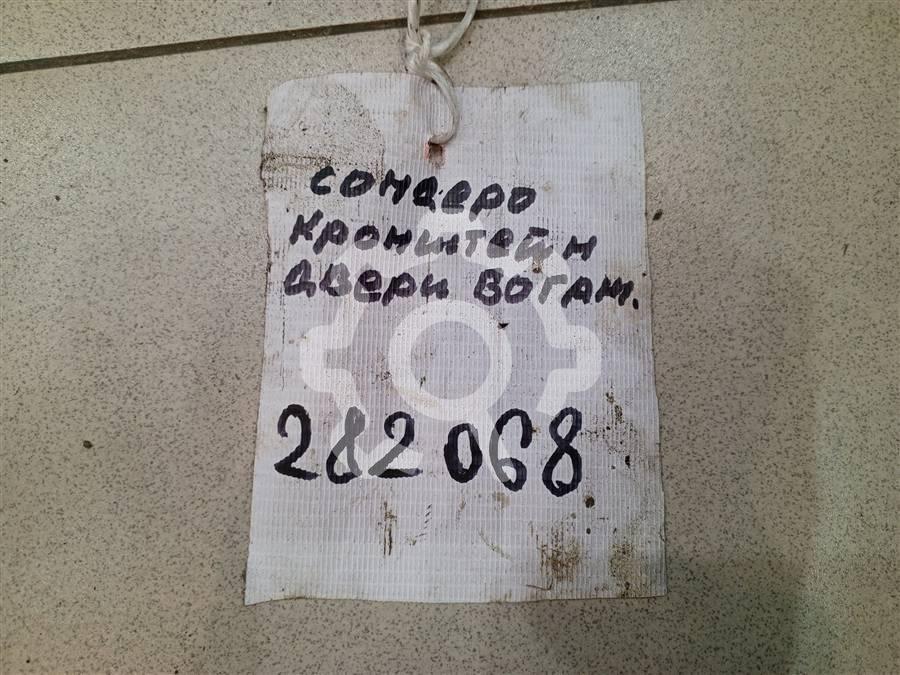 сондеро
кронштейн
двери вогаж.
282068